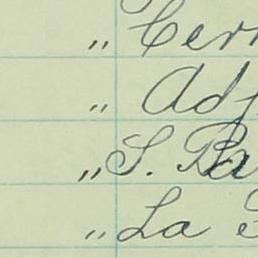 „ Cer
„ Adj
„ S. Ba
„ La